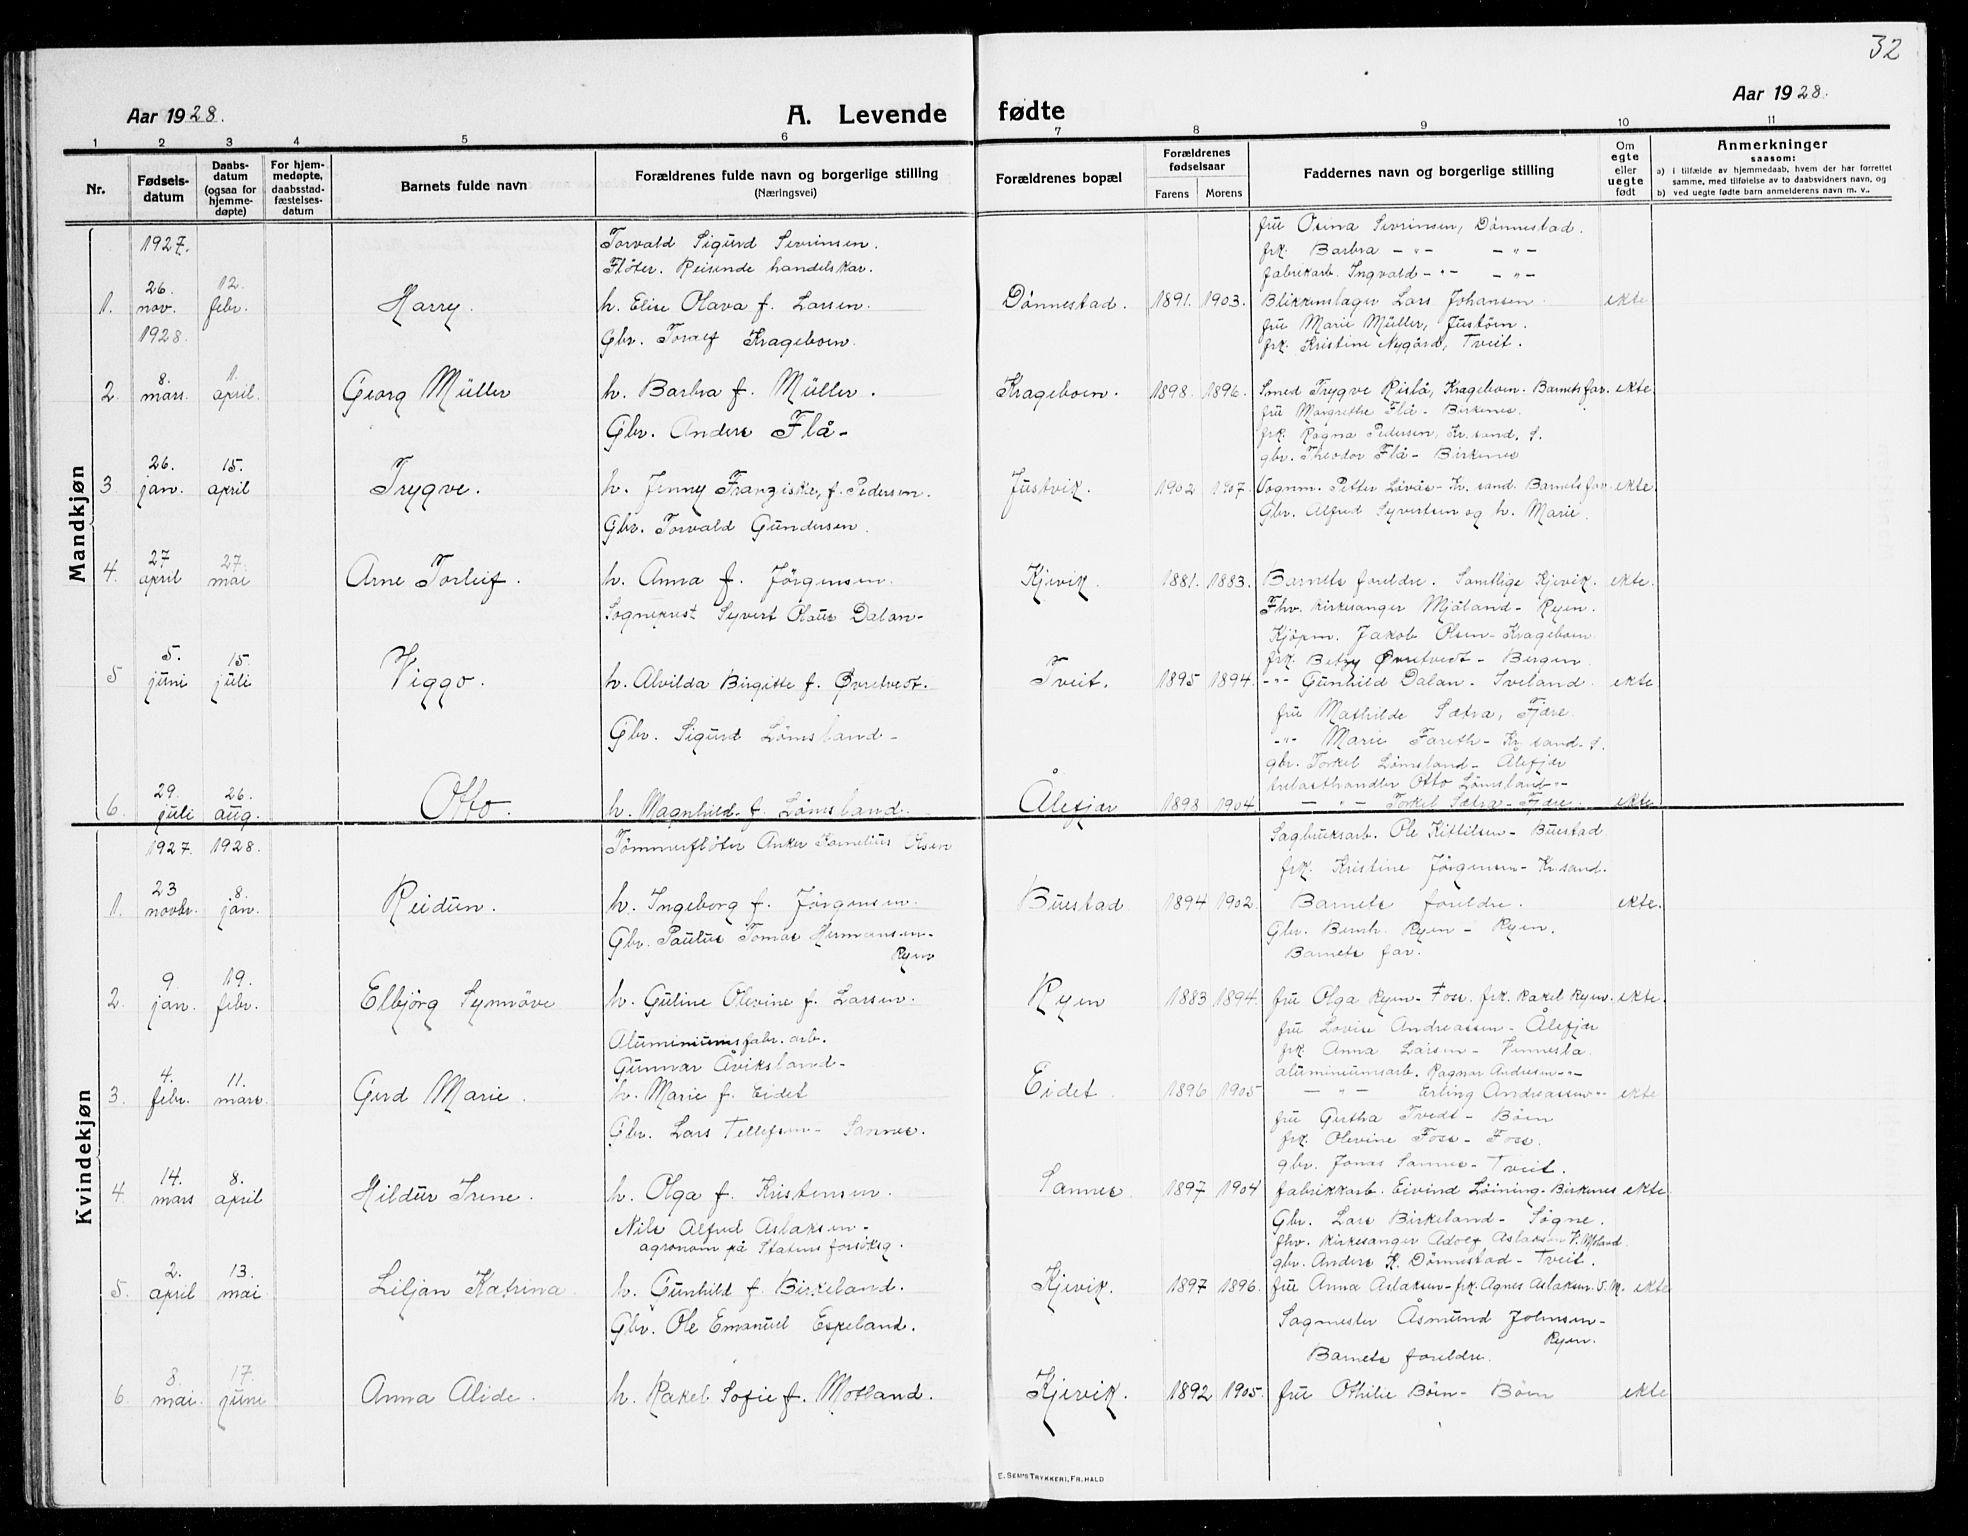 32
Aar 1928.
A. Levende fødte
Aar 1928.
1 2 3 4 5 6 7 8 9 10 11
Nr.
Fødselsdatum
Daabsdatum (ogsaa for hjemmedøpte)
For hjemmedøpte, daabsstadfæstelsesdatum
Barnets fulde navn
Forældrenes fulde navn og borgerlige stilling
(Næringsvei)
Forældrenes bopæl
Forældrenes fødselsaar
Farens Morens
Faddernes navn og borgerlige stilling
Om egte eller uegte født
Anmerkninger
saasom:
a) i tilfælde av hjemmedaab, hvem der har forrettet
samme, med tilføielse av to daabsvidners navn, og
b) ved uegte fødte barn anmelderens navn m. v..
Mandkjøn
1927.
Torvald Sigurd Sevrinsen.
fru Osina Sevrinsen, Dønnestad.
Fløter. Reisende handelskar.
frk. Barbra -"- -"-
fabrikarb. Ingvald -"- -"-
1. 26. nov. 12. febr. Harry. h. Elise Olava f. Larsen. Dønnestad. 1891. 1903. Blikkenslager Lars Johansen ekte
1928.
fru Marie Müller, Justøen.
Gbr. Toralf Krageboen.
frk. Kristine Nygård, Tveit.
2. 8. mars. 1. april. Georg Müller h. Barbra f. Müller. Krageboen. 1898. 1896. Smed Trygve Rislå, Krageboen. Barnets far. ekte.
fru Margrethe Flå - Birkenes.
Gbr. Anders Flå -
frk. Ragna Pedersen, Kr.sand. S.
gbr. Theodor Flå - Birkenes
3 26. jan. 15. april Trygve. h. Jenny Franziske, f. Pedersen. Justvik. 1902 1907. Vognm. Petter Løvås - Kr. sand. Barnets far ekte.
Gbr. Alfred Syvertsen og h. Marie.
Gbr. Torvald Gundersen
4. 27 april 27. mai Arne Torleif. h. Anna f. Jørgensen. Kjevik. 1881. 1883. Barnets foreldre. Samtlige Kjevik. ekte.
Fhv. kirkesanger Mjåland - Ryen.
Sogneprest Syvert Olaus Dalan -
Kjøpm. Jakob Olsen - Krageboen.
frk. Betzy Øvretvedt - Bergen
5 5. juni 15. juli Viggo. h. Alvilda Birgitte f. Øvretvedt. Tveit. 1895 1894. -"- Gunhild Dalan - Sveland. ekte
fru Mathilde Sætra, Fjære.
Gbr. Sigurd Lømsland -
-"- Marie Fareth - Kr. sand. S.
gbr. Torkel Lømsland - Ålefjær
trelasthandler Otto Lømsland -"-
6. 29. juli 26. aug. Otto. h. Magnhild. f. Lømsland. Ålefjær 1898 1904 - " - Torkel Sætra - Fjære. ekte
Kvindekjøn
1927. 1928.
Tømmerfløter Anker Kornelius Olsen
Sagbruksarb. Ole Kittilsen - Buestad
frk. Kristine Jørgensen - Kr.sand.
1. 23 novbr. 8. jan. Reidun. h. Ingeborg f. Jørgensen. Buestad 1894 1902. Barnets foreldre. ekte.
Gbr. Paulus Tomas Hermansen - Ryen
Gbr. Bernh. Ryen - Ryen.
Barnets far.
2. 9. jan. 19. febr. Elbjørg Synnøve h. Guline Olevine f. Larsen. Ryen 1883 1894. fru Olga Ryen - Foss. frk. Rakel Ryen. ekte.
fru Lovise Andreassen - Ålefjær
Aluminiumsfabr. arb.
frk. Anna Larsen - Vennesla.
Gunnar Åviksland -
aluminiumsarb. Ragnar Andersen -"-
3. 4. febr. 11. mars. Gerd Marie. h. Marie f. Eidet Eidet. 1896 1905 - " - Erling Andreassen -"- ekte
fru Gertha Tvedt - Bøen
Gbr. Lars Tellefsen - Sannes.
frk. Olevine Foss - Foss.
gbr. Jonas Sannes - Tveit.
4. 14. mars 8. april Hildur Irene. h. Olga f. Kristensen. Sannes. 1897 1904 fabrikkarb. Eivind Løining - Birkenes ekte
Nils Alfred Aslaksen -
Gbr. Lars Birkeland - Søgne.
agronom på Statens forsøksg.
fhv. kirkesanger Adolf Aslaksen V. Moland.
gbr. Anders K. Dønnestad - Tveit.
5. 2. april 13. mai Liljan Katrina. h. Gunhild f. Birkeland. Kjevik. 1897 1896. fru Anna Aslaksen - frk. Agnes Aslaksen. V. M. ekte
Gbr. Ole Emanuel Espeland.
Sagmester Åsmund Johnsen - Ryen.
Barnets foreldre.
6. 8. mai. 17. juni Anna Alide. h. Rakel Sofie f. Motland. Kjevik. 1892 1905. fru Othilie Bøen - Bøen ekte
E. SEM'S TRYKKERI, FR. HALD